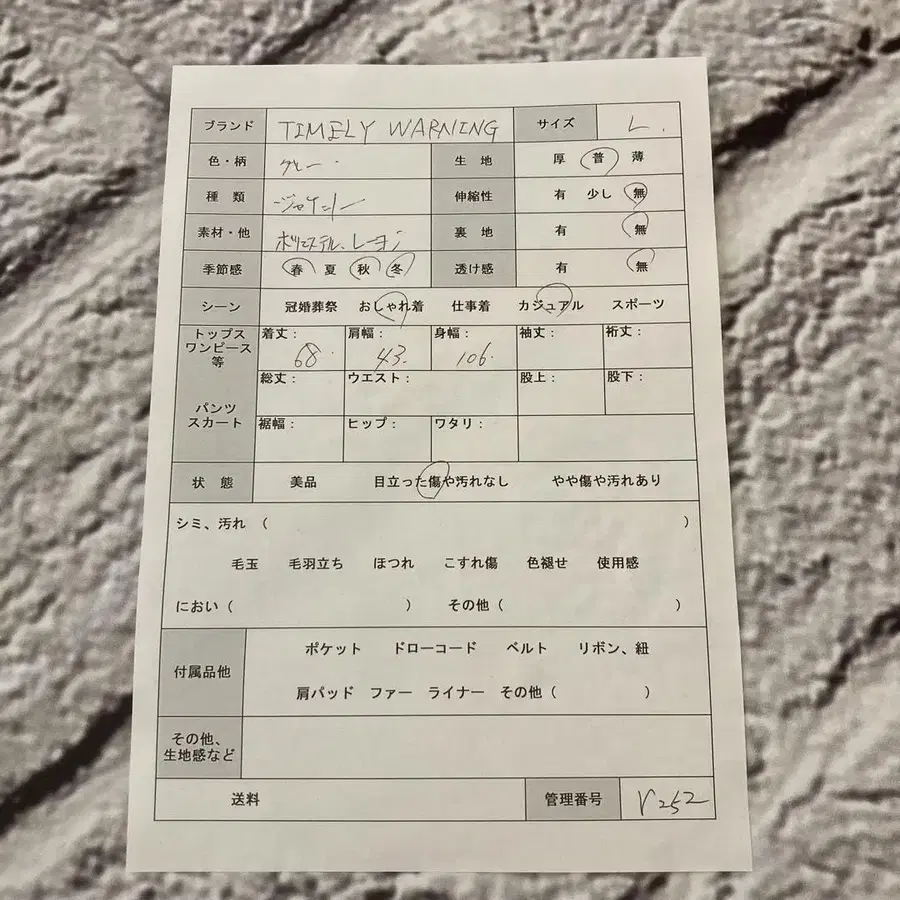 ブランド TIMELY WARNING サイズ L.
色・柄 グレー. 生地 厚 普 薄
種類 ジャケット 伸縮性 有 少し 無
素材・他 ポリエステル、レーヨン 裏地 有 無
季節感 春 夏 秋 冬 透け感 有 無
シーン 冠婚葬祭 おしゃれ着 仕事着 カジュアル スポーツ
トップス ワンピース 等 着丈: 68. 肩幅: 43. 身幅: 106. 袖丈: 裄丈:
パンツ スカート 総丈: ウエスト: 股上: 股下:
裾幅: ヒップ: ワタリ:
状態 美品 目立った傷や汚れなし やや傷や汚れあり
シミ、汚れ ( )
毛玉 毛羽立ち ほつれ こすれ傷 色褪せ 使用感
におい ( ) その他 ( )
付属品他 ポケット ドローコード ベルト リボン、紐
肩パッド ファー ライナー その他 ( )
その他、
生地感など
送料 管理番号 V252